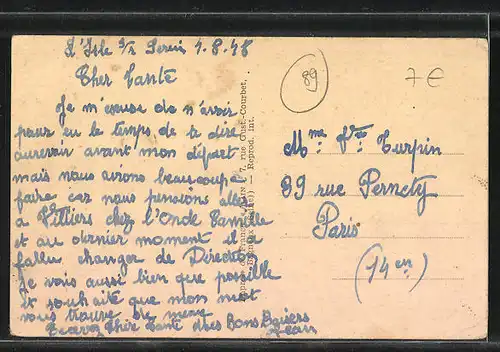 L'Isle s/s Serein 1.8.48
Cher Tante
Je m'excuse de n'avoir
pour eu le temps, de te dire
aurevoir avant mon départ
mais nous avons beaucoup à
faire car nous pensions aller
a Villiers chez l'Oncle Camille
et au dernier moment il a
fallu changer de Direction
je vais aussi bien que possible
et souhaite que mon mot
vous trouve de meme
Recevez Cher Tante des Bons Baisers
Jean
7, rue Gust.-Courbet.
Reprod. int.
89
7€
Mme Vve Turpin
89 rue Pernety
Paris
(14em)